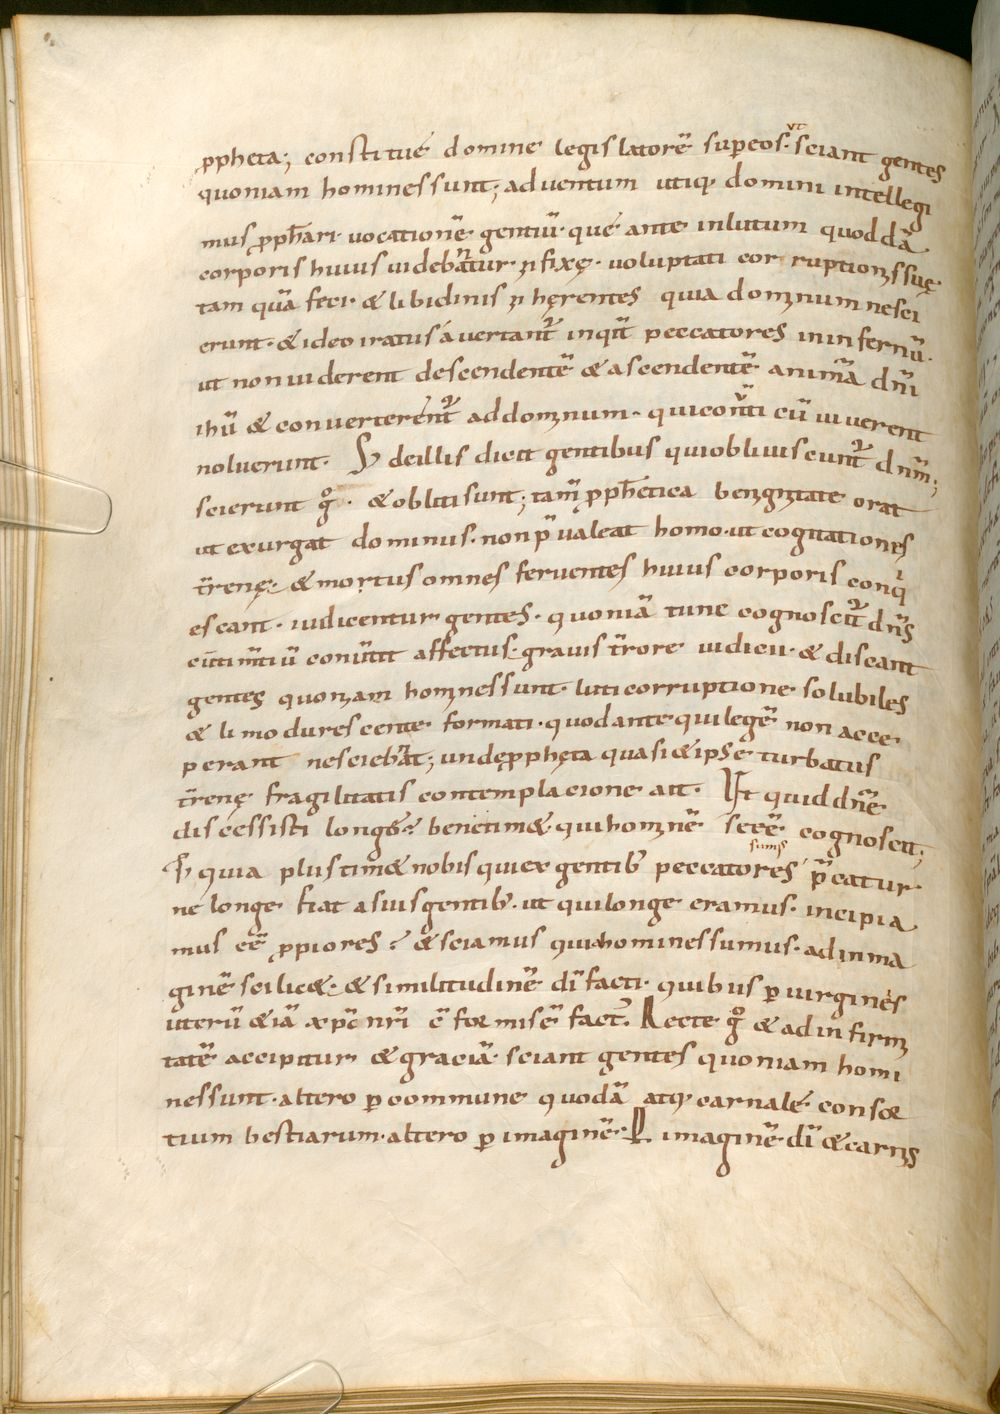 ppheta; constitué domine legislatorē sup eos· ut sciant gentes
quoniam homines sunt; aduentum utiq; domini intellegi
mus pphari uocationē gentiū· que ante inlutum quoddā
corporis huius uidebātur· nfixę· uoluptati corruptionis suę
tam quā feci· & libidinis n hęrentes quia dominum nesci
erunt· & ideo iratus áuertant inquit peccatores in infernū·
ut non uiderent descendentē & ascendentē animā dni
ihu & conuerterent ad dominum· qui conuti cū uiuerent
noluerunt· S; de illis dicit gentibus qui obliuiscunt dnm;
scierunt g· & obliti sunt; tam pphetica benignitate orat
ut exurgat dominus· non pualeat homo· ut cogitationes
trenę· & mortus omnes feruentes huius corporis conqi
escant· iudicentur gentes· quoniā tunc cognoscit dns
conuertit affectus· grauis trore iudicii· & discant
gentes quoniam homines sunt· luti corruptione solubiles
& limo durescente formati· quod ante qui legē non acce
perant nesciebāt; unde ppheta quasi & ipse turbatus
trenę fragilitatis contemplacione ait· Ut quid dne
discessisti longe? bene tim& qui hominē seeē cognoscit;
S; quia plus tim& nobis qui ex gentib; peccatores sumus pcatur
ne longe fiat a suis gentib;· ut qui longe eramus· incipia
mus eē ppiores? & sciamus quia homines sumus· ad inma
ginē scilic&· & similitudinē di facti· quibus p uirginés
uterū &iā xpc nri cformisē fact· Recte g & ad infirmi
tatē accipitur & graciā· sciant gentes quoniam homi
nes sunt· altero p commune quodā atq; carnalé consor
tium bestiarum· altero p imaginē· imaginē di & carnis